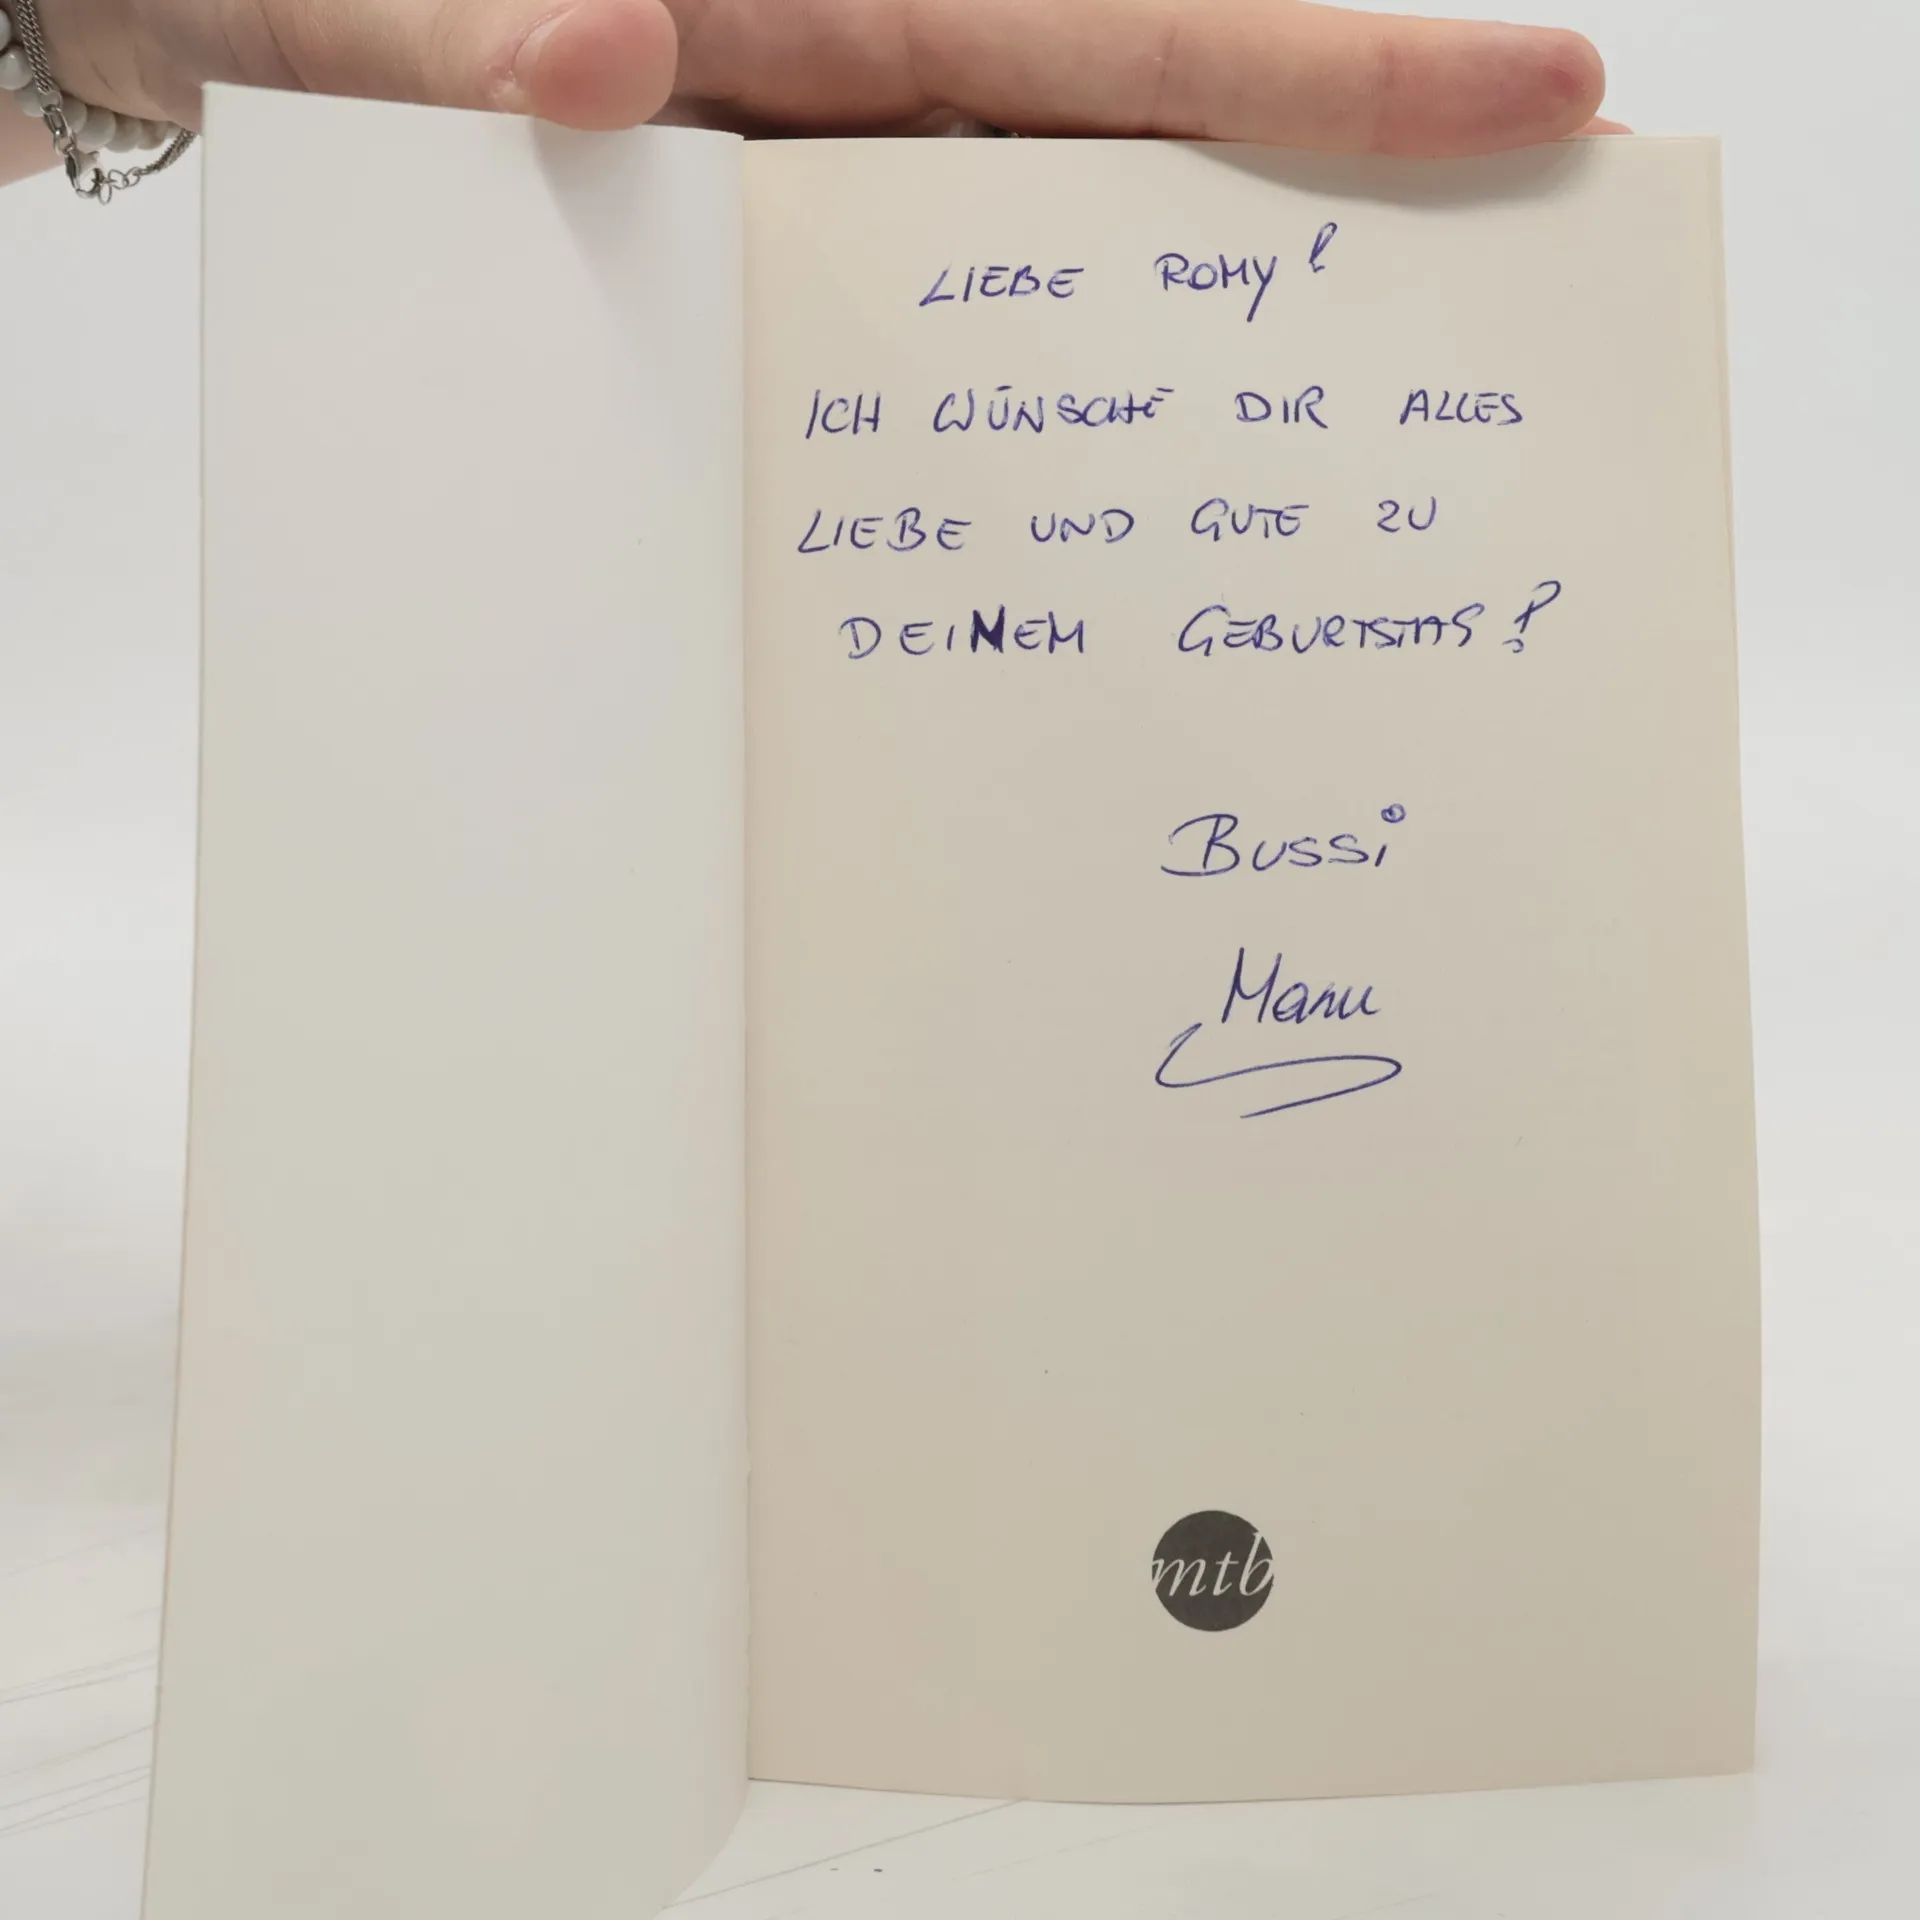 LIEBE ROMY!
ICH WÜNSCHE DIR ALLES
LIEBE UND GUTE ZU
DEINEM GEBURTSTAG!
BUSSi
Manu
mtb